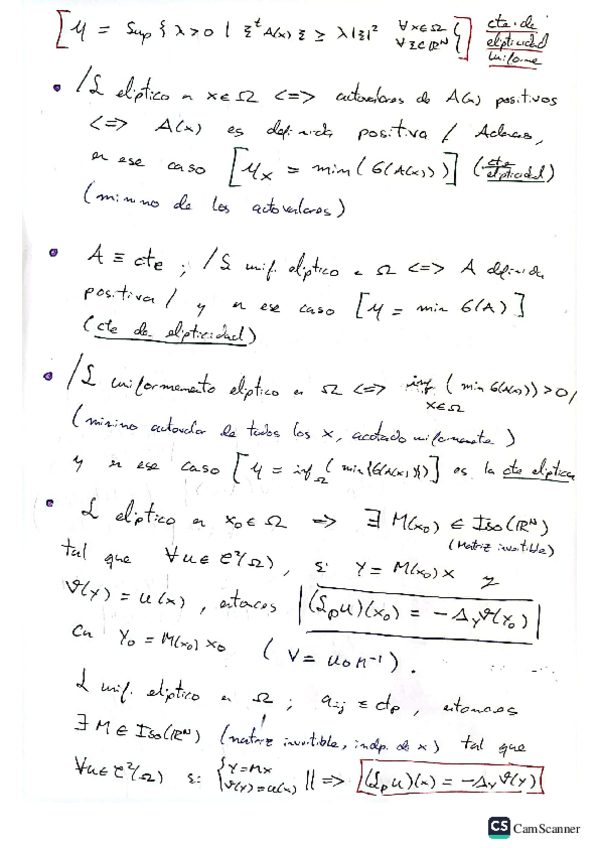 [μ = Sup { λ>0 | ξᵗ A(x) ξ ≥ λ|ξ|² ∀x∈Ω ∀ξ∈ℝᴺ }] cte. de elipticidad uniforme
• /ℒ elíptico en x∈Ω <=> autovalores de A(x) positivos
<=> A(x) es definida positiva / Además,
en ese caso [μₓ = min(σ(A(x)))] (cte elipticidad)
(mínimo de los autovalores)
• A ≡ cte ; /ℒ unif. elíptico en Ω <=> A definida
positiva / y en ese caso [μ = min σ(A)]
(cte de elipticidad)
• /ℒ uniformemente elíptico en Ω <=> inf x∈Ω (min σ(A(x))) > 0 /
(mínimo autovalor de todos los x, acotado uniformemente)
y en ese caso [μ = inf Ω (min{σ(A(x))})] es la cte elíptica
• ℒ elíptico en x₀∈Ω => ∃ M(x₀) ∈ Iso(ℝᴺ)
(Matriz invertible)
tal que ∀u∈C²(Ω), si Y = M(x₀)x y
ϑ(Y) = u(x), entonces |(ℒₚu)(x₀) = -Δᵧϑ(Y₀)|
con Y₀ = M(x₀)x₀ (V = u∘M⁻¹).
ℒ unif. elíptico en Ω ; aᵢⱼ ≡ cte, entonces
∃ M ∈ Iso(ℝᴺ) (matriz invertible, indep. de x) tal que
∀u∈C²(Ω) si {Y=Mx ϑ(Y)=u(x) || => |(ℒₚu)(x) = -Δᵧϑ(Y)|
CS CamScanner